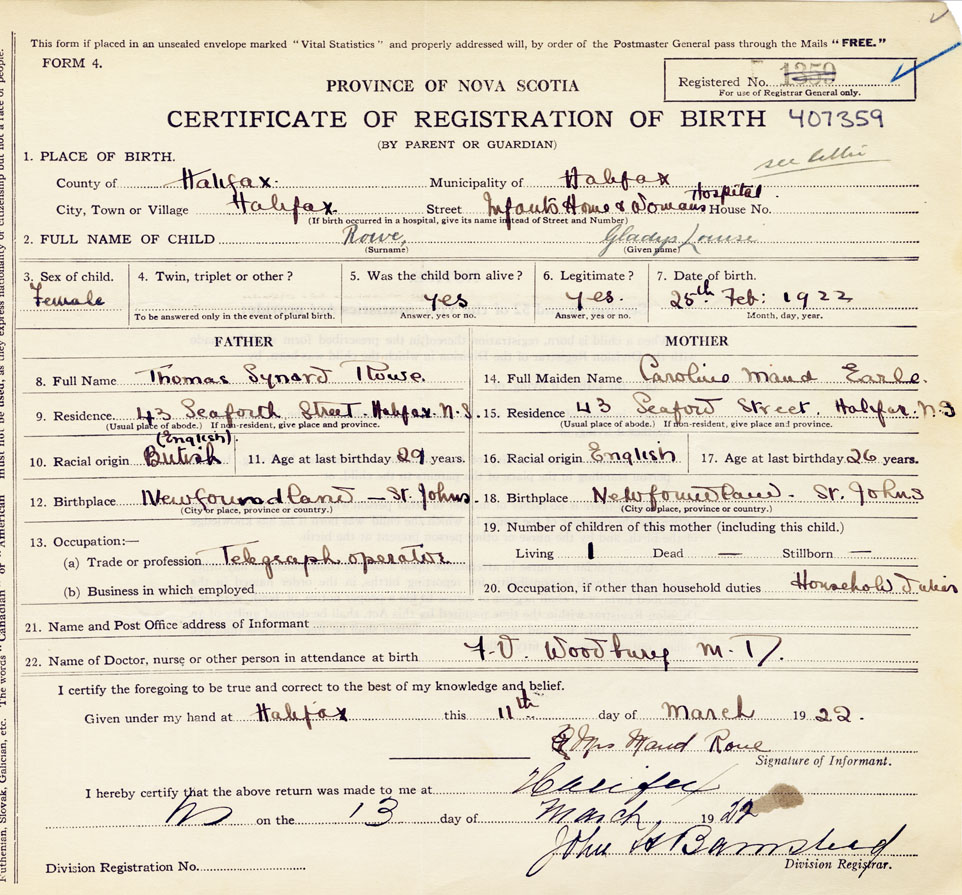 This form if placed in an unsealed envelope marked "Vital Statistics" and properly addressed will, by order of the Postmaster General pass through the Mails "FREE."
FORM 4.
Registered No. 1359
For use of Registrar General only.
PROVINCE OF NOVA SCOTIA
CERTIFICATE OF REGISTRATION OF BIRTH 407359
(BY PARENT OR GUARDIAN)
see
1. PLACE OF BIRTH.
County of Halifax. Municipality of Halifax
City, Town or Village Halifax. Street Infants Home & Womans Hospital. House No.
(If birth occurred in a hospital, give its name instead of Street and Number)
2. FULL NAME OF CHILD Rowe, Gladys Louise
(Surname) (Given name)
3. Sex of child. 4. Twin, triplet or other? 5. Was the child born alive? 6. Legitimate? 7. Date of birth.
Female yes yes. 25th Feb: 1922
To be answered only in the event of plural birth. Answer, yes or no. Answer, yes or no. Month, day, year.
FATHER MOTHER
8. Full Name Thomas Synard Rowe. 14. Full Maiden Name Caroline Maud Earle.
9. Residence 43 Seaforth Street. Halifax. N.S 15. Residence 43 Seaford Street. Halifax. N.S
(Usual place of abode.) If non-resident, give place and province. (Usual place of abode.) If non-resident, give place and province.
(English).
10. Racial origin British 11. Age at last birthday 29 years. 16. Racial origin English 17. Age at last birthday 26 years.
12. Birthplace Newfoundland - St. Johns 18. Birthplace Newfoundland - St. Johns
(City or place, province or country.) (City or place, province or country.)
19. Number of children of this mother (including this child.)
13. Occupation:—
(a) Trade or profession Telegraph operator Living 1 Dead — Stillborn —
(b) Business in which employed 20. Occupation, if other than household duties Household Duties
21. Name and Post Office address of Informant
22. Name of Doctor, nurse or other person in attendance at birth F. V. Woodbury M. D.
I certify the foregoing to be true and correct to the best of my knowledge and belief.
Given under my hand at Halifax this 11th day of March 1922.
Mrs Maud Rowe
Signature of Informant.
I hereby certify that the above return was made to me at Halifax
on the 13 day of March 1922
John H Barnstead
Division Registration No. Division Registrar.